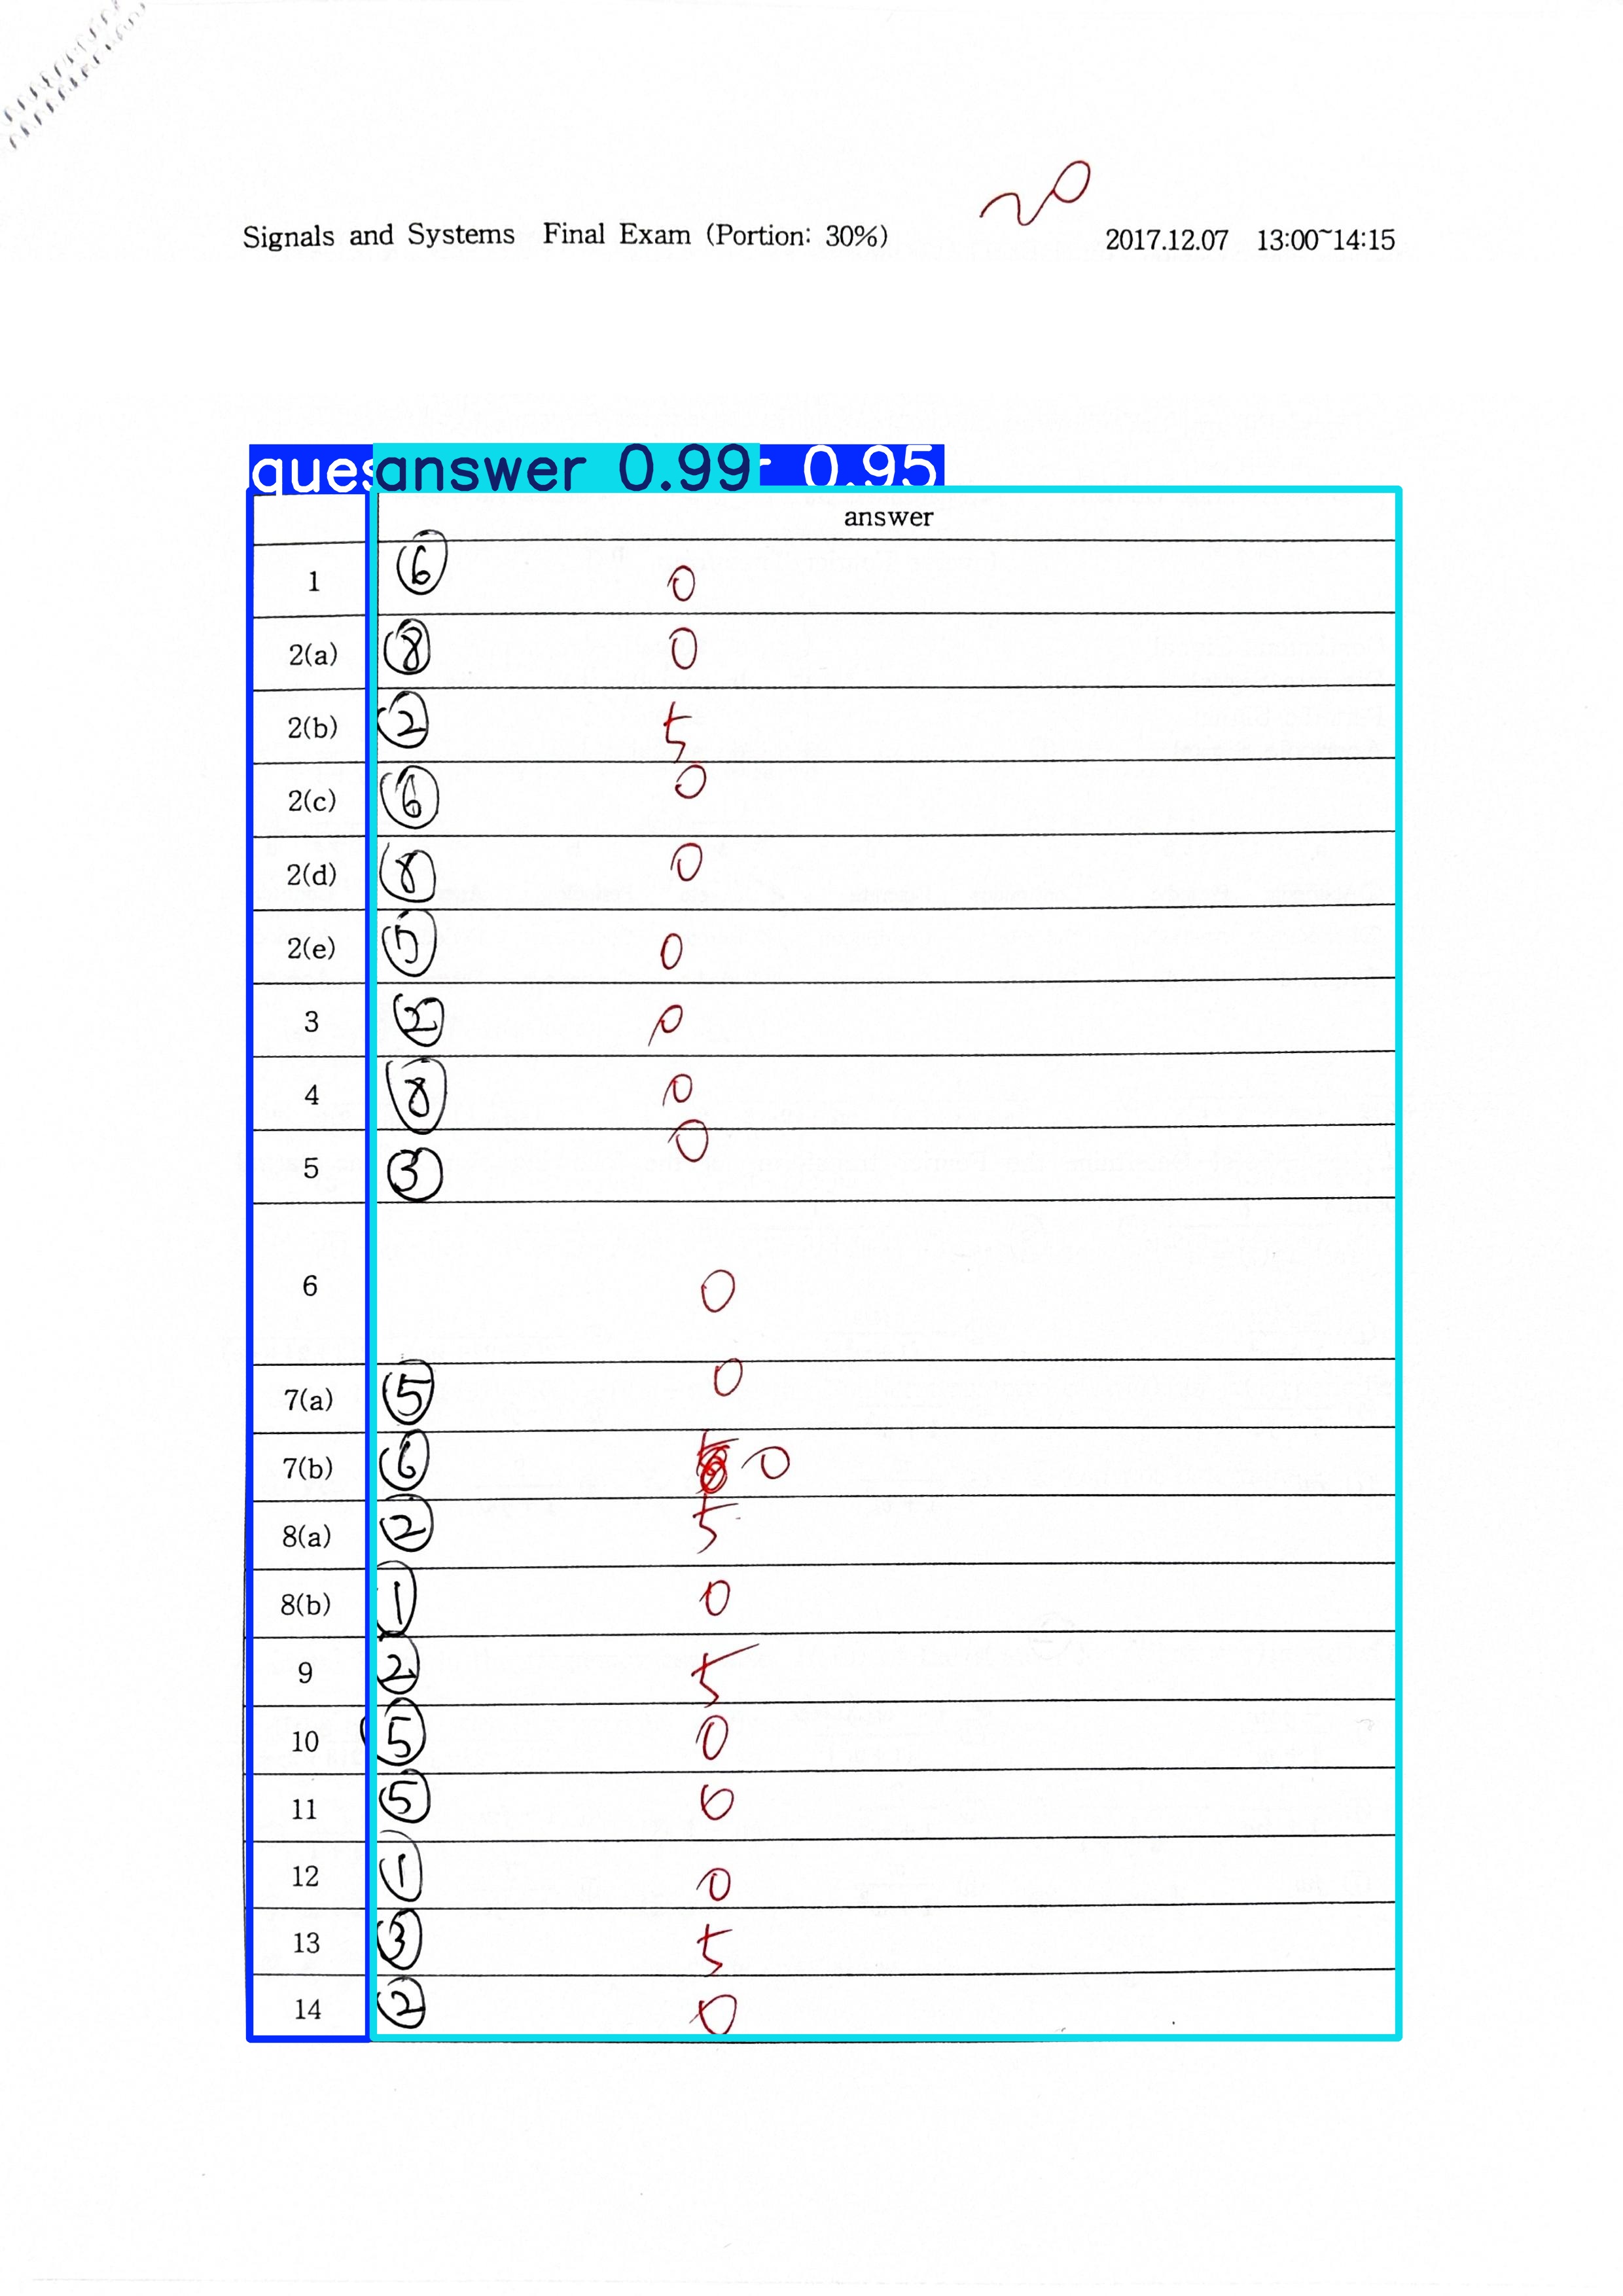 20
Signals and Systems Final Exam (Portion: 30%) 2017.12.07 13:00~14:15
answer 0.99 0.95
answer
1 ⑥ 0
2(a) ⑧ 0
2(b) ② 5
2(c) ⑥ 0
2(d) ⑧ 0
2(e) ⑤ 0
3 ② 0
4 ⑧ 0
5 ③ 0
6 0
7(a) ⑤ 0
7(b) ⑥ 0
8(a) ② 5
8(b) ① 0
9 ② 5
10 ⑤ 0
11 ⑤ 0
12 ① 0
13 ③ 5
14 ② 0